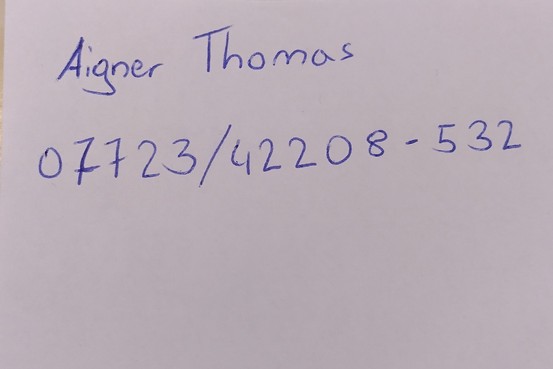 Aigner Thomas
07723/42208-532